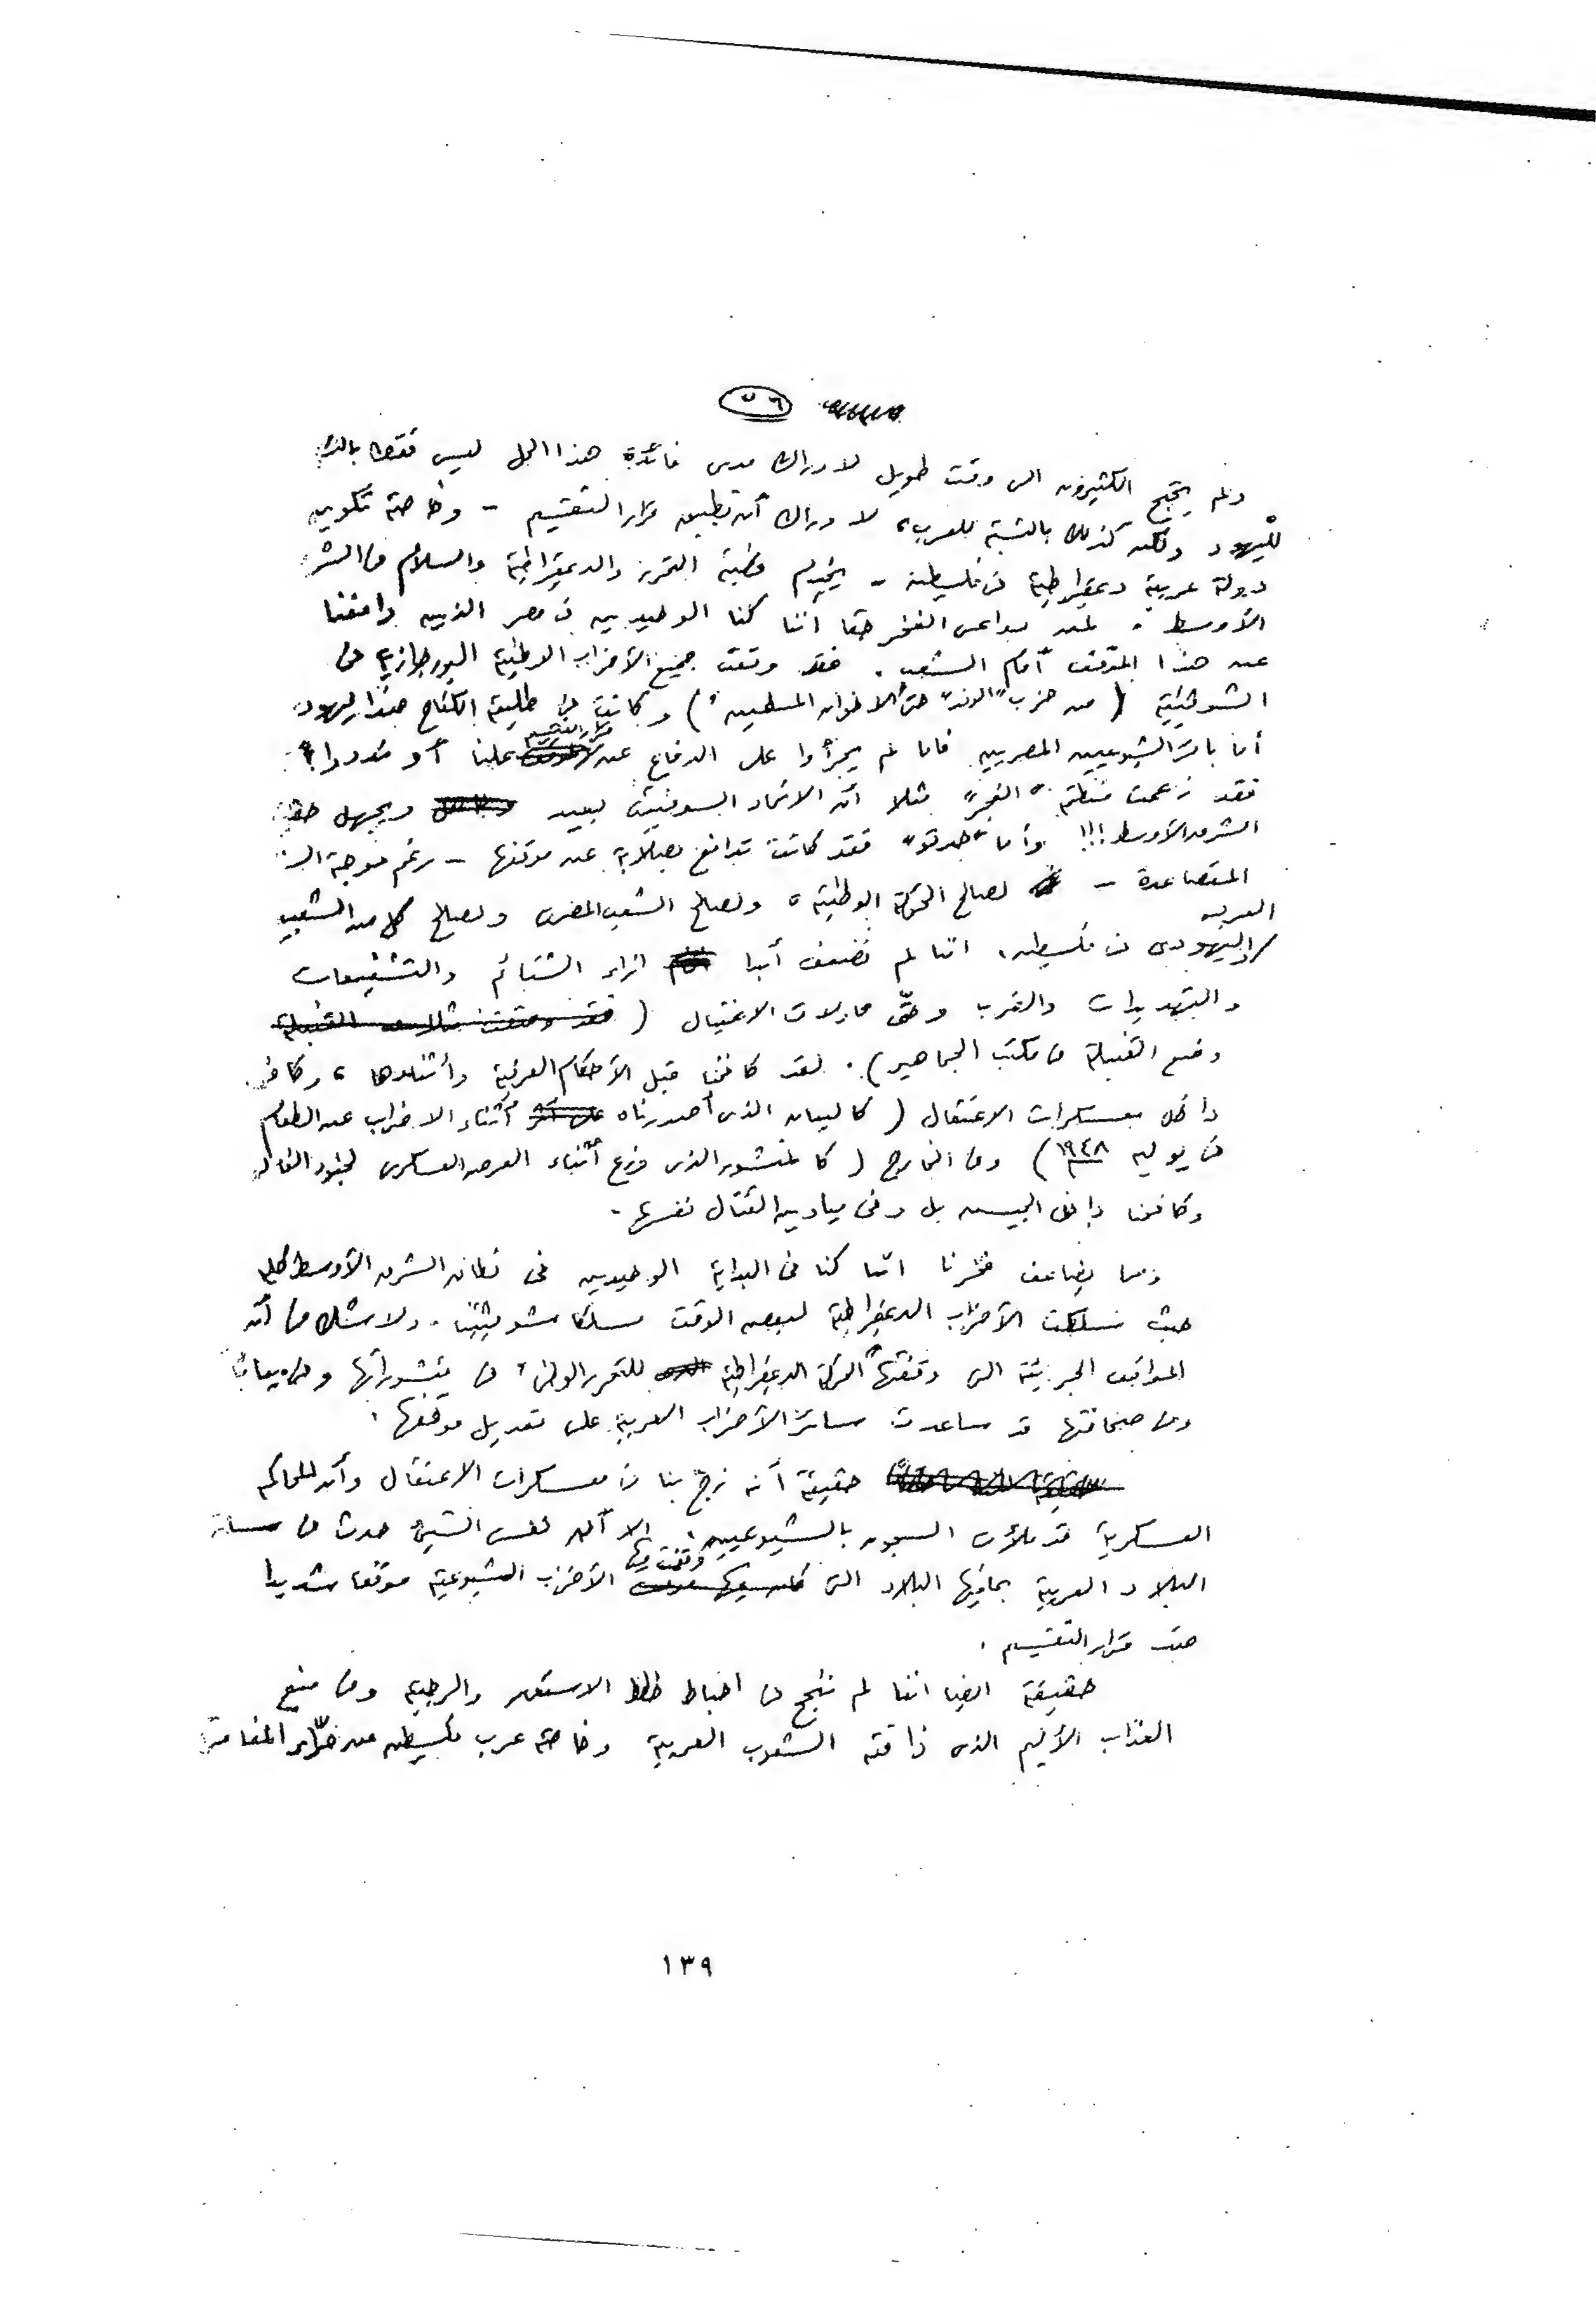 ٥٦
ولم يحتج الكثيرون الى وقت طويل لادراك مدى فائدة هذا الحل ليس فقط
لليهود ولكن كذلك بالنسبة للعرب، لادراك أن تطبيق قرار التقسيم - وخاصة تكوين
دولة عربية ديمقراطية فى فلسطين - يخدم قضية التحرر والديمقراطية والسلام فى الشر
الأوسط. لمن دواعى الفخر حقا أننا كنا الوحيديين فى مصر الذين دافعنا
عن هذا الموقف أمام الشعب. فقد وقفت جميع الأحزاب الوطنية البورجوازية فى
الشوفينية (من حزب "الوفد" حتى "الاخوان المسلمين") وكانت فى طليعة الكفاح ضد اليهود
أما باقى الشيوعيين المصريين فاما لم يجرأوا على الدفاع عن قرار التقسيم علنا أو نددوا به
فقد زعمت منظمة "الفجر" مثلا أن الاتحاد السوفيتى بعيد ويجهل
الشرق الأوسط!!! وأما "حدتو" فقد كانت تدافع بصلابة عن موقفها - رغم موجة
المتصاعدة - لصالح الحركة الوطنية، ولصالح الشعب المصرى ولصالح كل من الشعبين
العربى
واليهودى فى فلسطين. اننا لم نضعف أبدا ازاء الشتائم والتشنيعات
والتهديدات والضرب وحتّى محاولات الاغتيال (فقد وضعت القنبلة
وضع القنبلة فى مكتب الجماهير). لقد كافحنا قبل الأحكام العرفية وأثناءها، وكافحنا
داخل معسكرات الاعتقال (كالبيان الذى أصدرناه أثناء الاضراب عن الطعام
فى يوليه ١٩٤٨) وفى الخارج (كالمنشور الذى وزع أثناء العرض العسكرى
وكافحنا داخل الجيش بل وفى ميادين القتال نفسها.
ومما يضاعف فخرنا اننا كنا فى البداية الوحيديين فى نطاق الشرق الأوسط كله
حيث سلكت الأحزاب الديمقراطية لبعض الوقت مسلكا شوفينيا. ولا شك فى أن
المواقف الجريئة التى وقفتها "الحركة الديمقراطية للتحرر الوطنى" فى منشوراتها وفى
وفى صحافتها قد ساعدت سائر الأحزاب العربية على تعديل موقفها.
حقيقة أنه زجّ بنا فى معسكرات الاعتقال وأن المحاكم
العسكرية قد ملأت السجون بالشيوعيين. الا أن نفس الشئ حدث فى
البلاد العربية بما فيها البلاد التى وقفت فيها الأحزاب الشيوعية موقفا شديدا
ضد قرار التقسيم.
حقيقة ايضا اننا لم ننجح فى احباط خطط الاستعمار والرجعية وفى منع
العذاب الأليم الذى ذاقته الشعوب العربية وخاصة عرب فلسطين من جرّاء
١٣٩